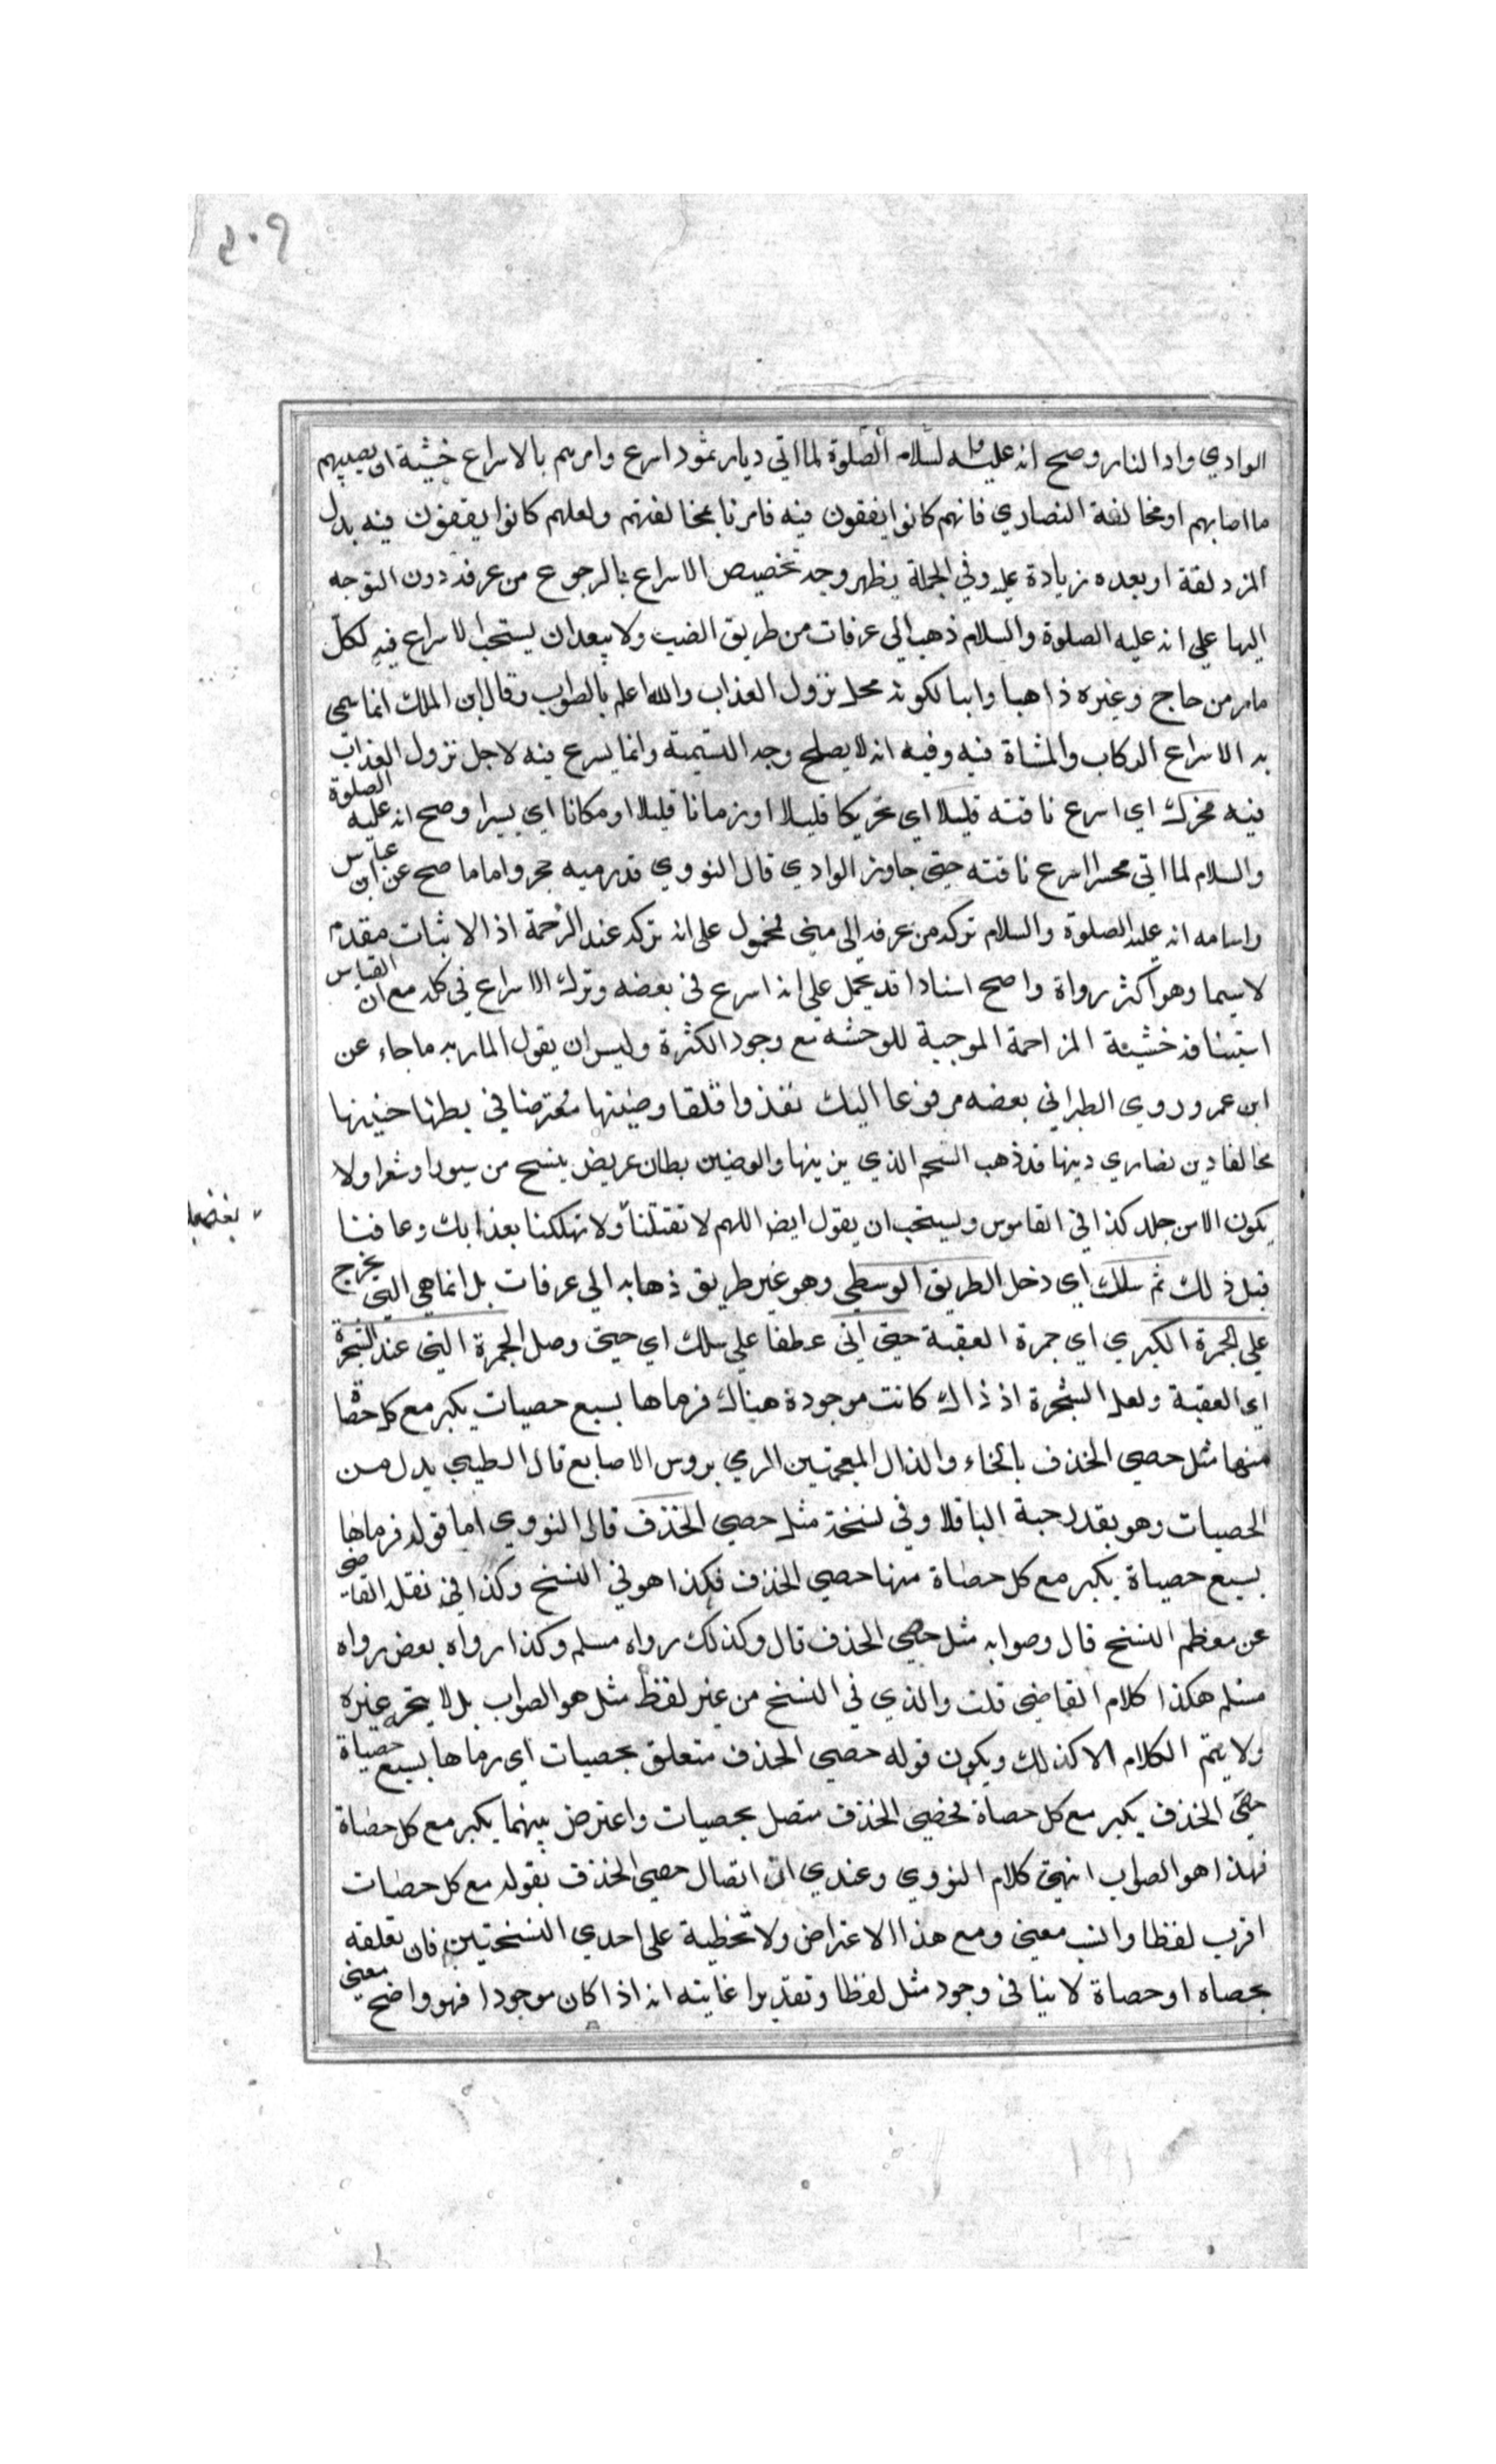 ٤٠٩
الوادي وادا النار وصح انه عليه السلام الصلوة لما اتي ديار ثمود اسرع وامرهم بالاسراع خشية ان يصيبهم
ما اصابهم او مخالفة النصاري فانهم كانوا يفقون فيه فامرنا بمخالفتهم ولعلهم كانوا يقفون فيه بدل
المزدلقة او بعده زيادة عليه وفي الجملة يظهر وجه تخصيص الاسراع بالرجوع من عرفه دون التوجه
اليها علي انه عليه الصلوة والسلام ذهب الي عرفات من طريق الضب ولا يبعد ان يستحب الاسراع فيه لكل
مار من حاج وغيره ذاهبا وايبا لكونه محل نزول العذاب والله اعلم بالصواب وقال ابن الملك انما سمي
به الاسراع الركاب والمشاة فيه وفيه انه لا يصلح وجه التسمية وانما يسرع فيه لاجل نزول العذاب
فيه فحرك اي اسرع ناقته قليلا اي تحريكا قليلا او زمانا قليلا او مكانا اي يسيرا وصح انه عليه الصلوة
والسلام لما اتي محسر اسرع ناقته حتي جاوز الوادي قال النووي قدرميه حجر واما ما صح عن ابن عباس
واسامه انه عليه الصلوة والسلام تركه من عرفه الي مني فمحمول على انه تركه عند الزحمة اذ الاثبات مقدم
لاسيما وهو اكثر رواة واصح اسنادا قد يحمل علي انه اسرع في بعضه وترك الاسراع في كله مع ان القياس
استينافه خشية المزاحمة الموجبة للوحشه مع وجود الكثرة وليس ان يقول المار به ما جاء عن
ابن عمر وروي الطبراني بعضه مرفوعا اليك تغذوا قلقا وضينها معترضا في بطنها جنينها
مخالفا دين نصاري دينها قد ذهب الشحم الذي يزينها والوضين بطان عريض ينسج من سيورا وشعرا ولا
يكون الا من جلد كذا في القاموس ويستحب ان يقول ايضا اللهم لا تقتلنا ولا تهلكنا بعذابك وعافنا
قبل ذلك ثم سلك اي دخل الطريق الوسطي وهو غير طريق ذهابه الي عرفات بل انما هي التي تخرج
علي الجمرة الكبري اي جمرة العقبة حتي اتي عطفا علي سلك اي حتي وصل الجمرة التي عند الشجرة
اي العقبة ولعل الشجرة اذ ذاك كانت موجودة هناك فرماها بسبع حصيات يكبر مع كل حصاة
منها مثل حصي الخذف بالخاء والذال المعجمتين الرمي بروس الاصابع قال الطيبي بدل من
الحصيات وهو بقدر حبة الباقلا وفي نسخة مثل حصي الخذف قال النووي اما قوله فرماها
بسبع حصياة يكبر مع كل حصاة منها حصي الخذف فكذا هو في النسخ وكذا في نقله القاضي
عن معظم النسخ قال وصوابه مثل حصي الخذف قال وكذلك رواه مسلم وكذا رواه بعض رواه
مسلم هكذا كلام القاضي قلت والذي في النسخ من غير لفظ مثل هو الصواب بل لا يتجه غيره
ولا يتم الكلام الا كذلك ويكون قوله حصي الخذف متعلق بحصيات اي رماها بسبع حصياة
حصي الخذف يكبر مع كل حصاة فحصي الخذف متصل بحصيات واعترض بينهما يكبر مع كل حصاة
فهذا هو الصواب انتهي كلام النووي وعندي ان اتصال حصي الخذف بقوله مع كل حصات
اقرب لفظا وانسب معني ومع هذا الاعتراض ولا تخطية على احدي النسختين فان تعلقه
بحصاه او حصاة لا ينافي وجود مثل لفظا وتقديرا غايته انه اذا كان موجودا فهو واضح معني